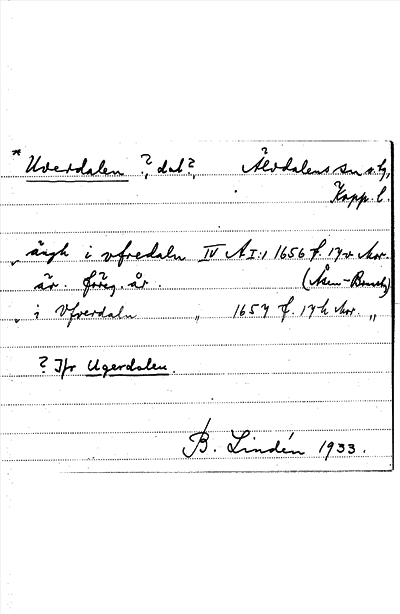 * Uverdalen ?, dal?, Älvdalens sn o. tg,
Kopp. l.
„ ängh i vfredaln IV A I:1 1656 f. 17 v Mor.
är. föreg. år. (Åsen-Brunnsbg)
„ i Vfverdaln „ 1657 f. 17 h Mor. „
? Jfr Ugerdalen.
B. Lindén 1933.